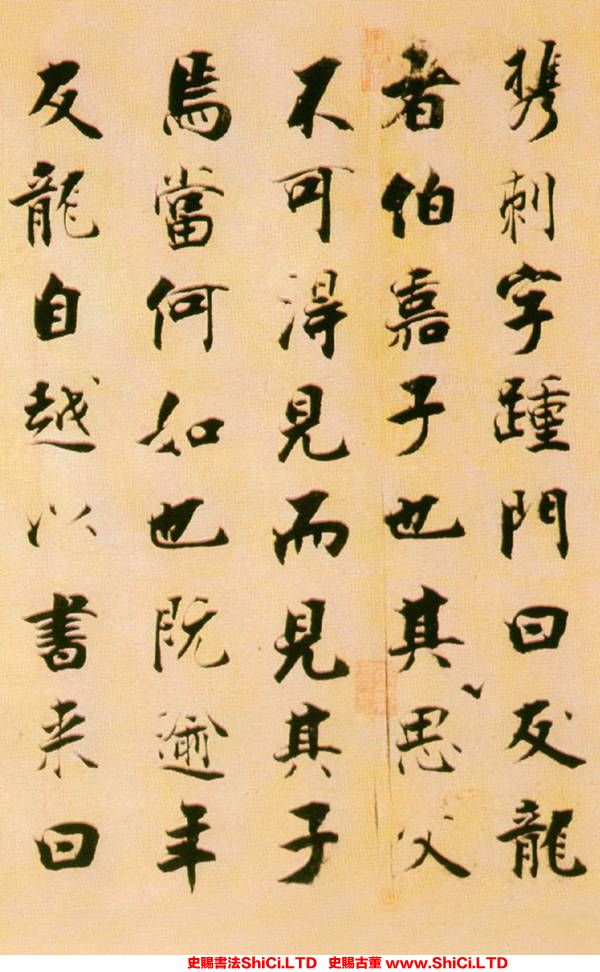 携刺字踵門曰友龍
者伯嘉子也其思父
不可得見而見其子
焉當何如也既逾年
友龍自越以書来曰
史賜書法ShiCi.LTD 史賜古董 www.ShiCi.LTD